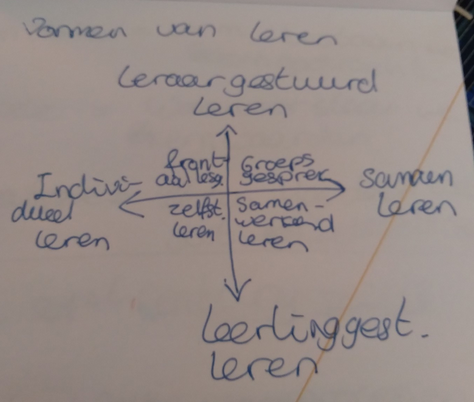 Vormen van leren
leraargestuurd
leren
front-
aal lesg.
Groeps
gesprek
Indivi-
dueel
leren
samen
leren
zelfst.
leren
Samen-
werkend
leren
leerlinggest.
leren